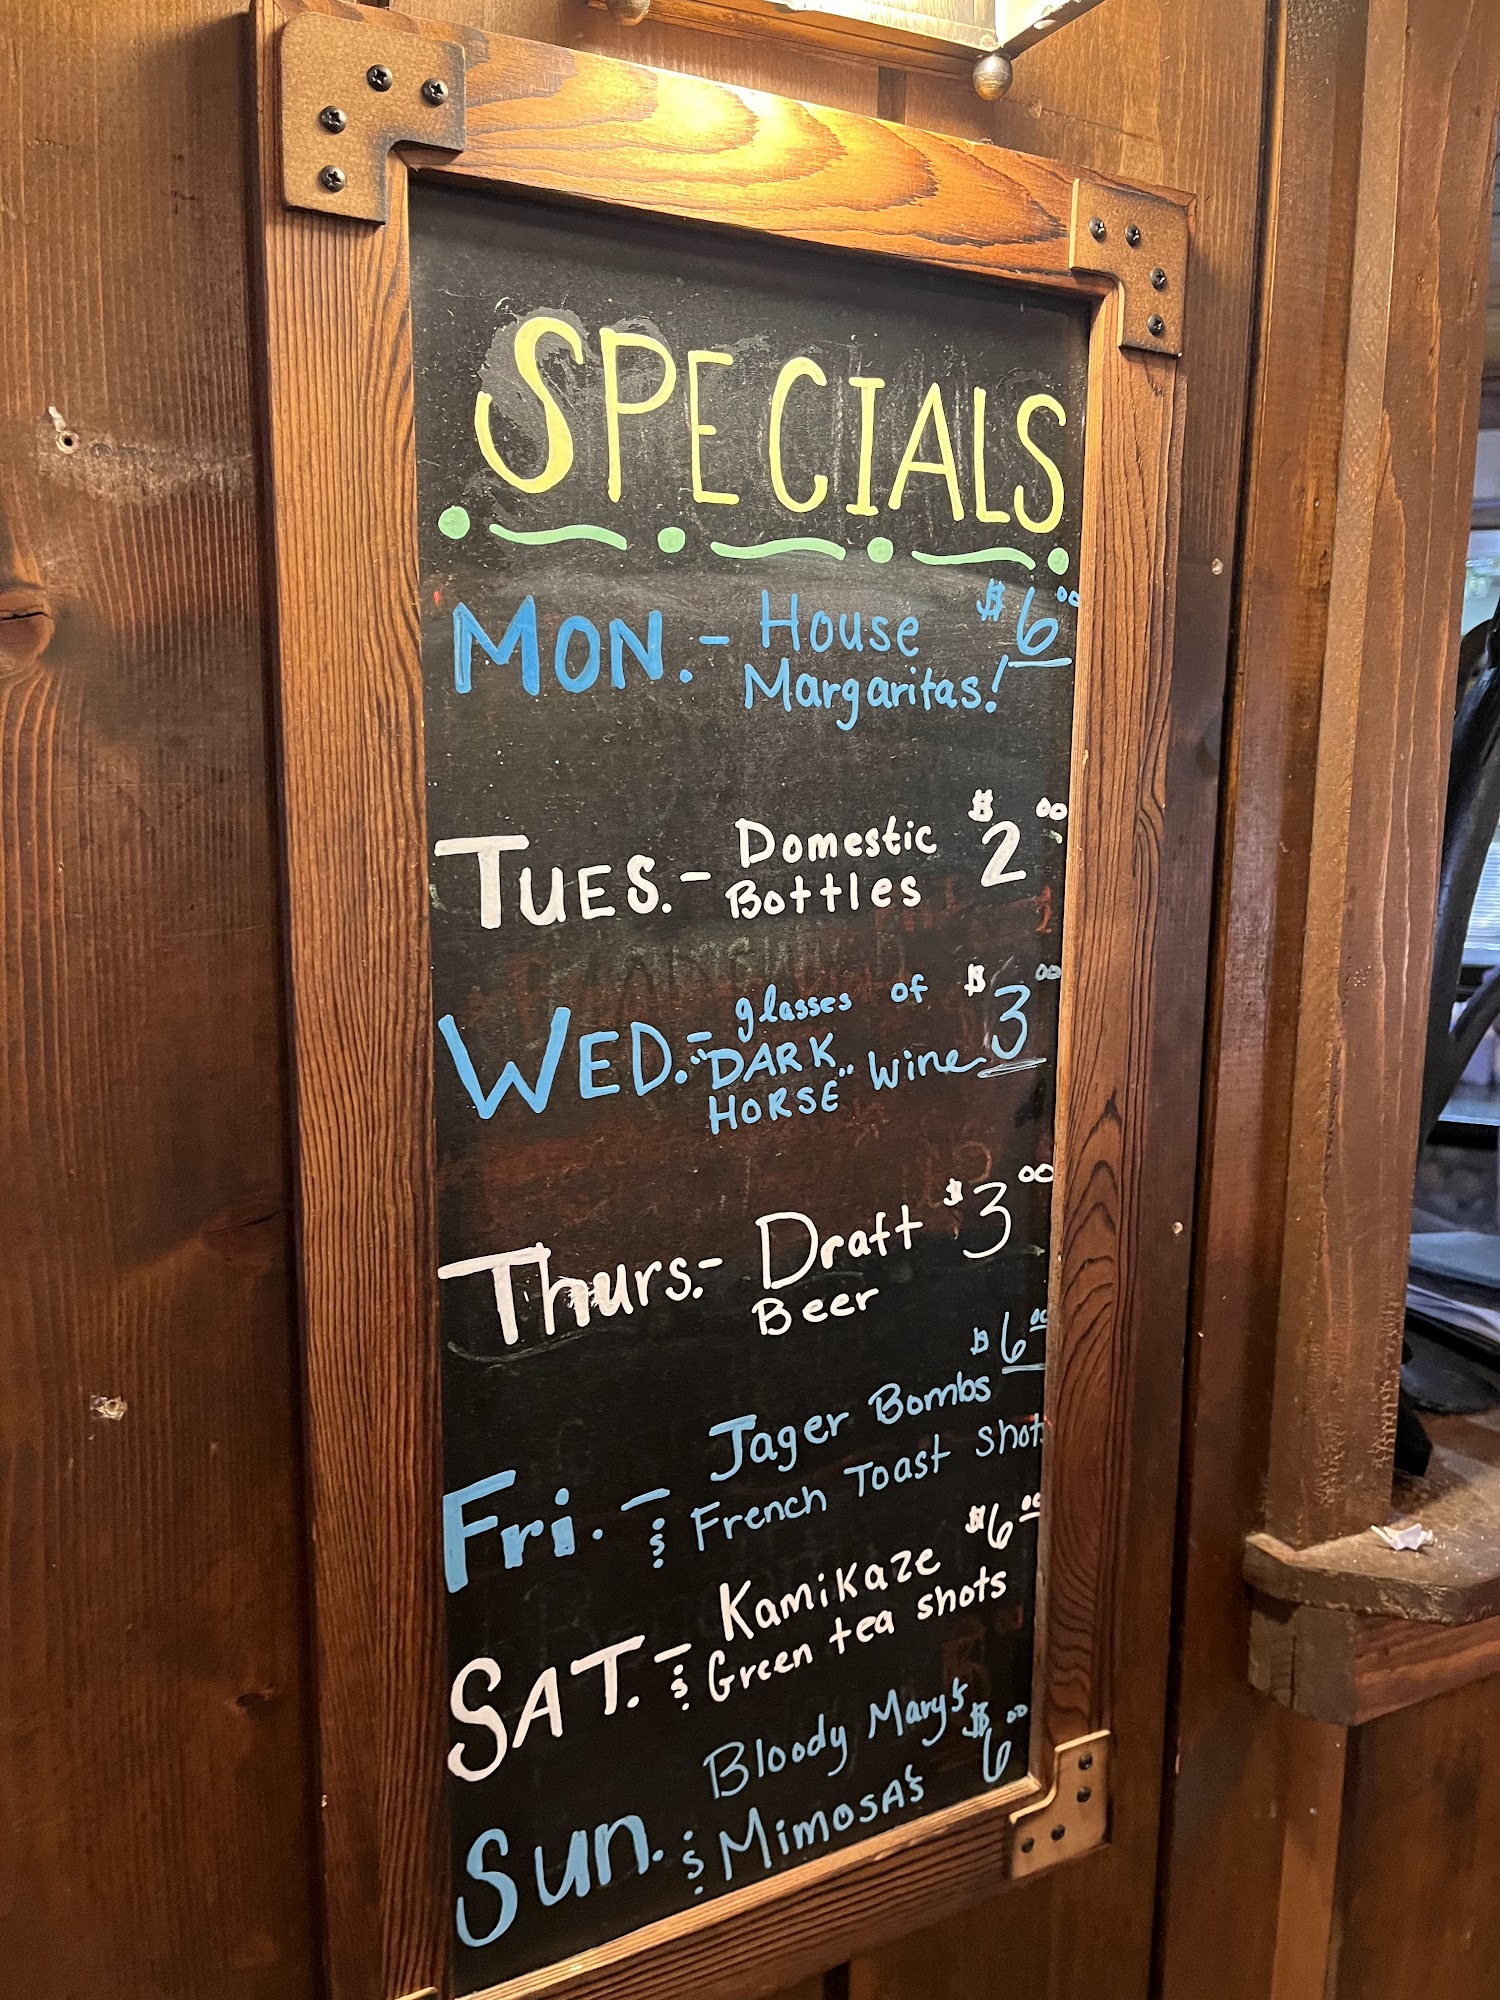 SPECIALS
MON. - House $6.00
Margaritas!
TUES. - Domestic $2.00
Bottles
WED. - glasses of $3.00
"DARK
HORSE" Wine
Thurs. - Draft $3.00
Beer
$6.00
Jager Bombs
Fri. - & French Toast shots
$6.00
Kamikaze
SAT. - & Green tea shots
Bloody Mary's $6.00
Sun. & Mimosa's